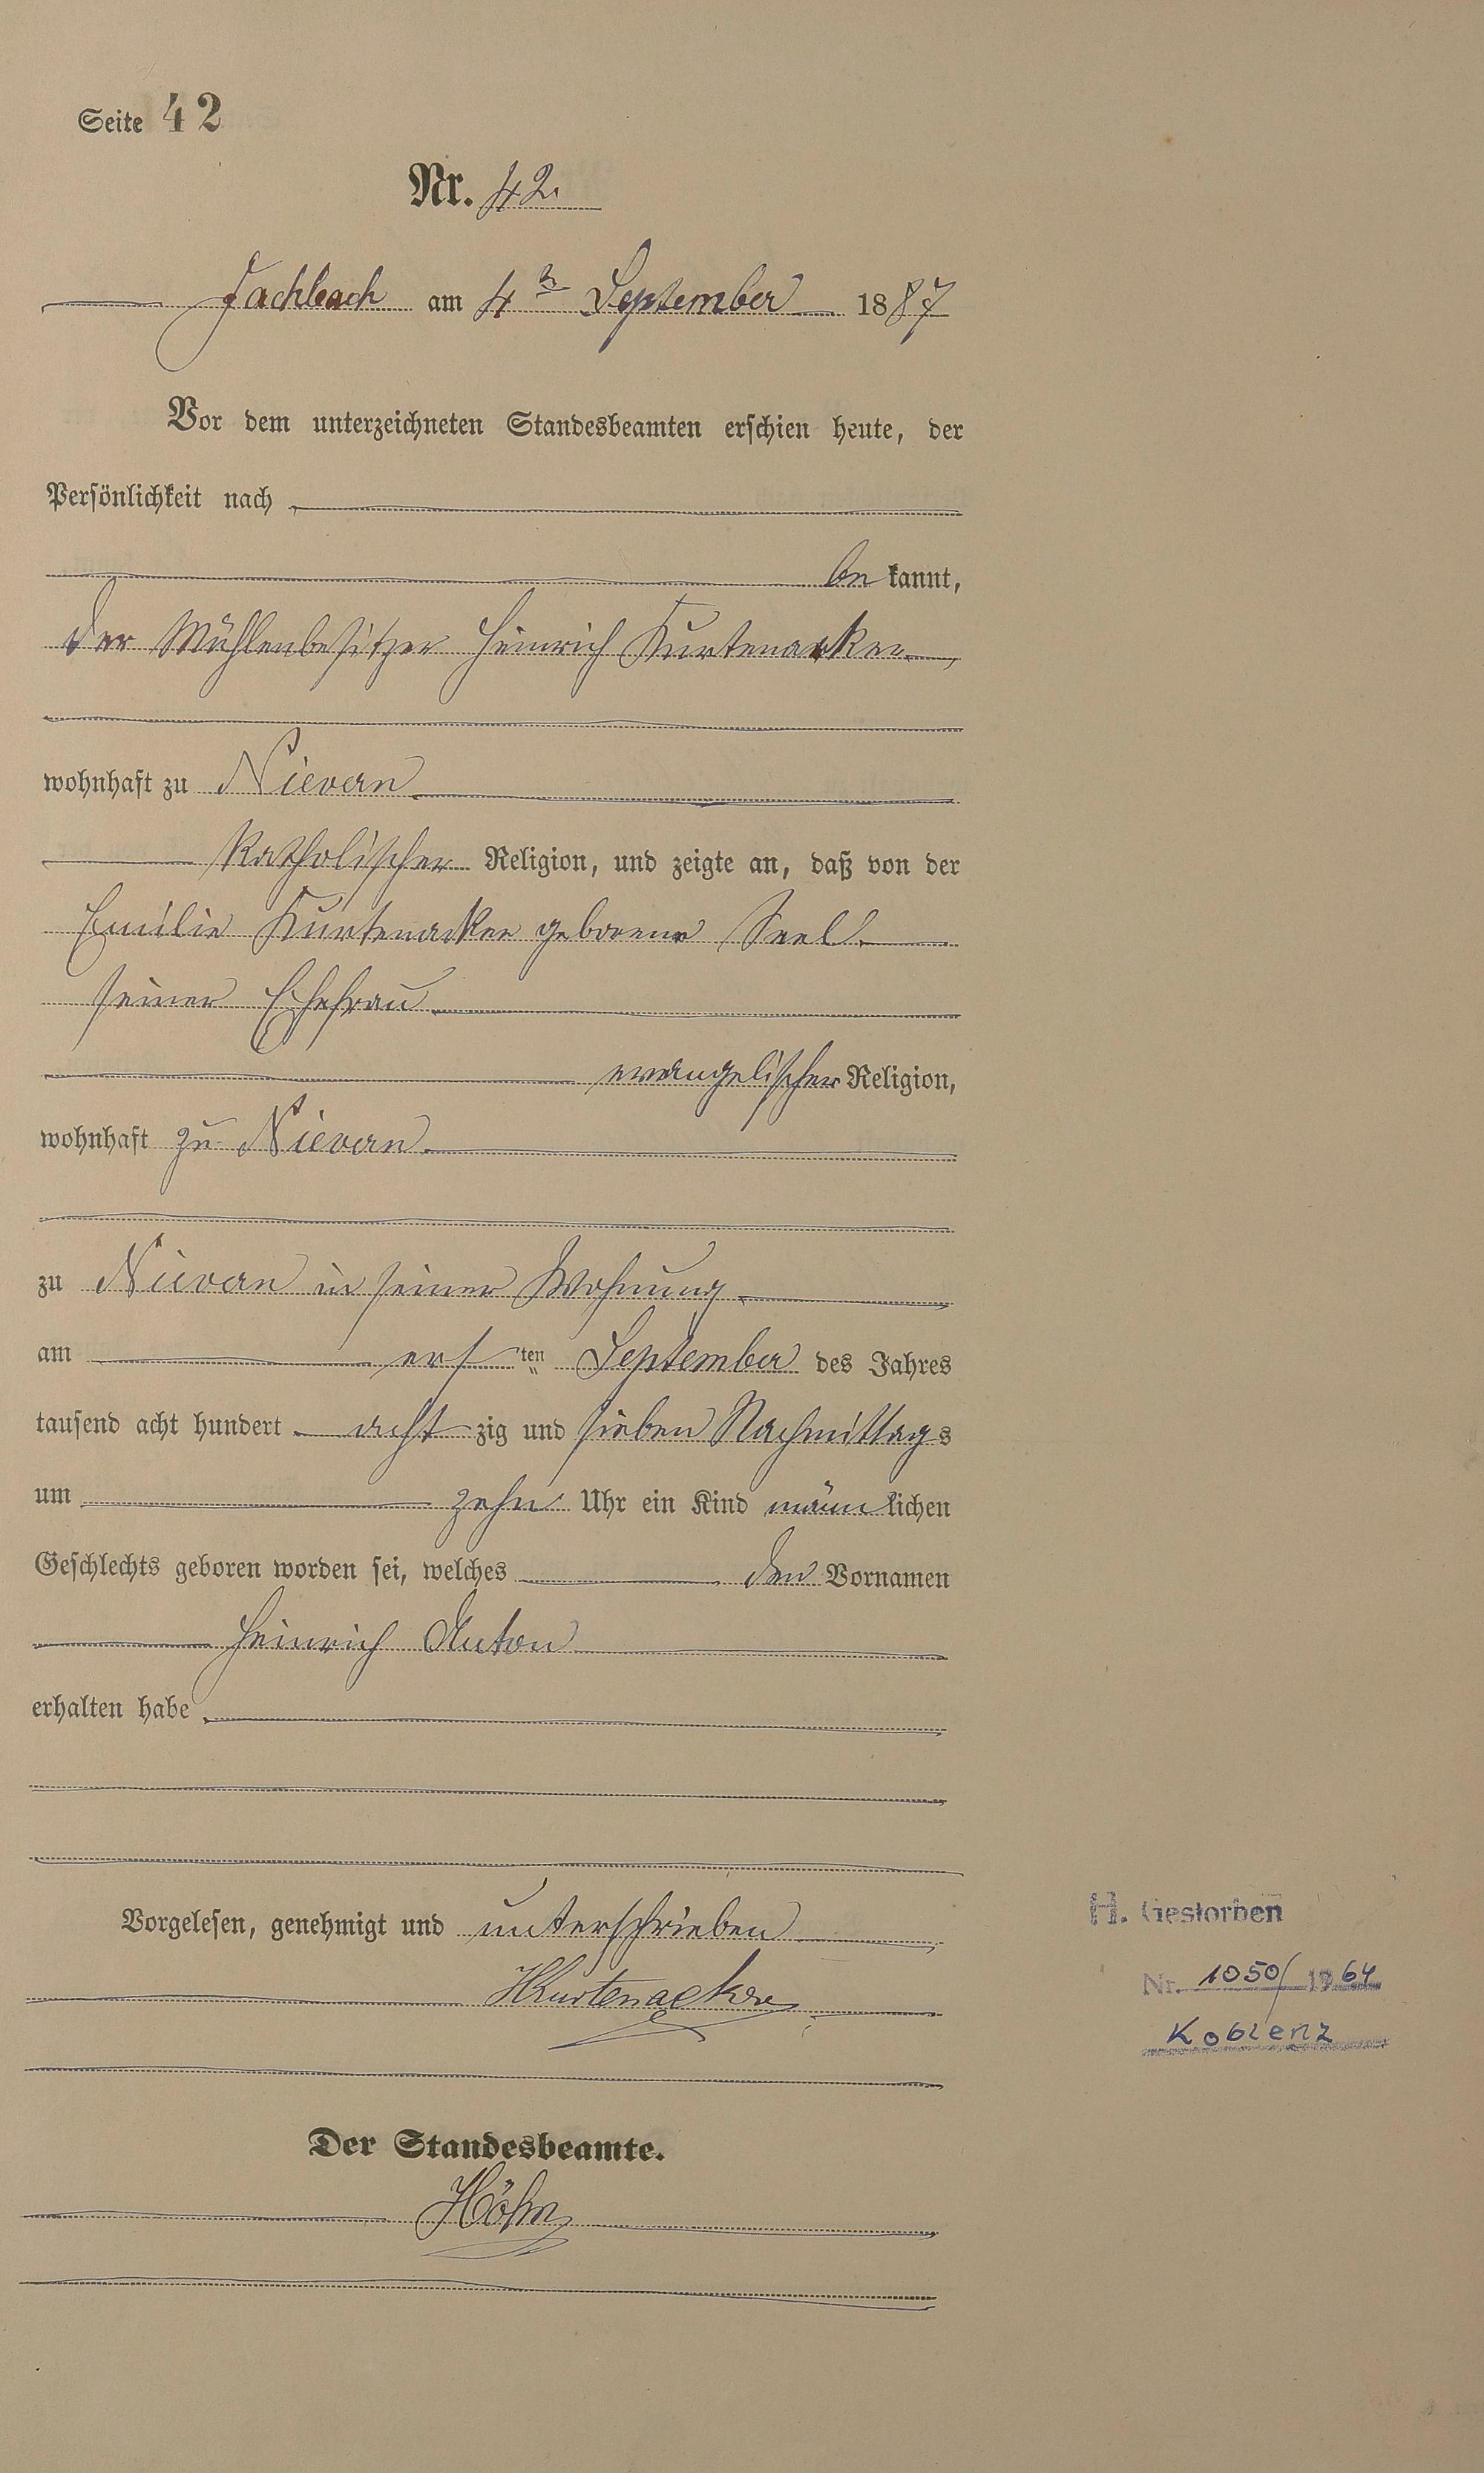 Seite 42
Nr. 42.
Fachbach am 4ten September 1887
Vor dem unterzeichneten Standesbeamten erschien heute, der
Persönlichkeit nach
be kannt,
der Mühlenbesitzer Heinrich Kurtenacker
wohnhaft zu Nievern
katholischer Religion, und zeigte an, daß von der
Emilie Kurtenacker geborene Seel
seiner Ehefrau
evangelischer Religion,
wohnhaft zu Nievern
zu Nievern in seiner Wohnung
am ersten September des Jahres
tausend acht hundert achtzig und sieben Nachmittags
um zehn Uhr ein Kind männlichen
Geschlechts geboren worden sei, welches den Vornamen
Heinrich Anton
erhalten habe
Vorgelesen, genehmigt und unterschrieben
HKurtenacker
Der Standesbeamte.
Höhn
H. Gestorben
Nr. 1050/1964
Koblenz